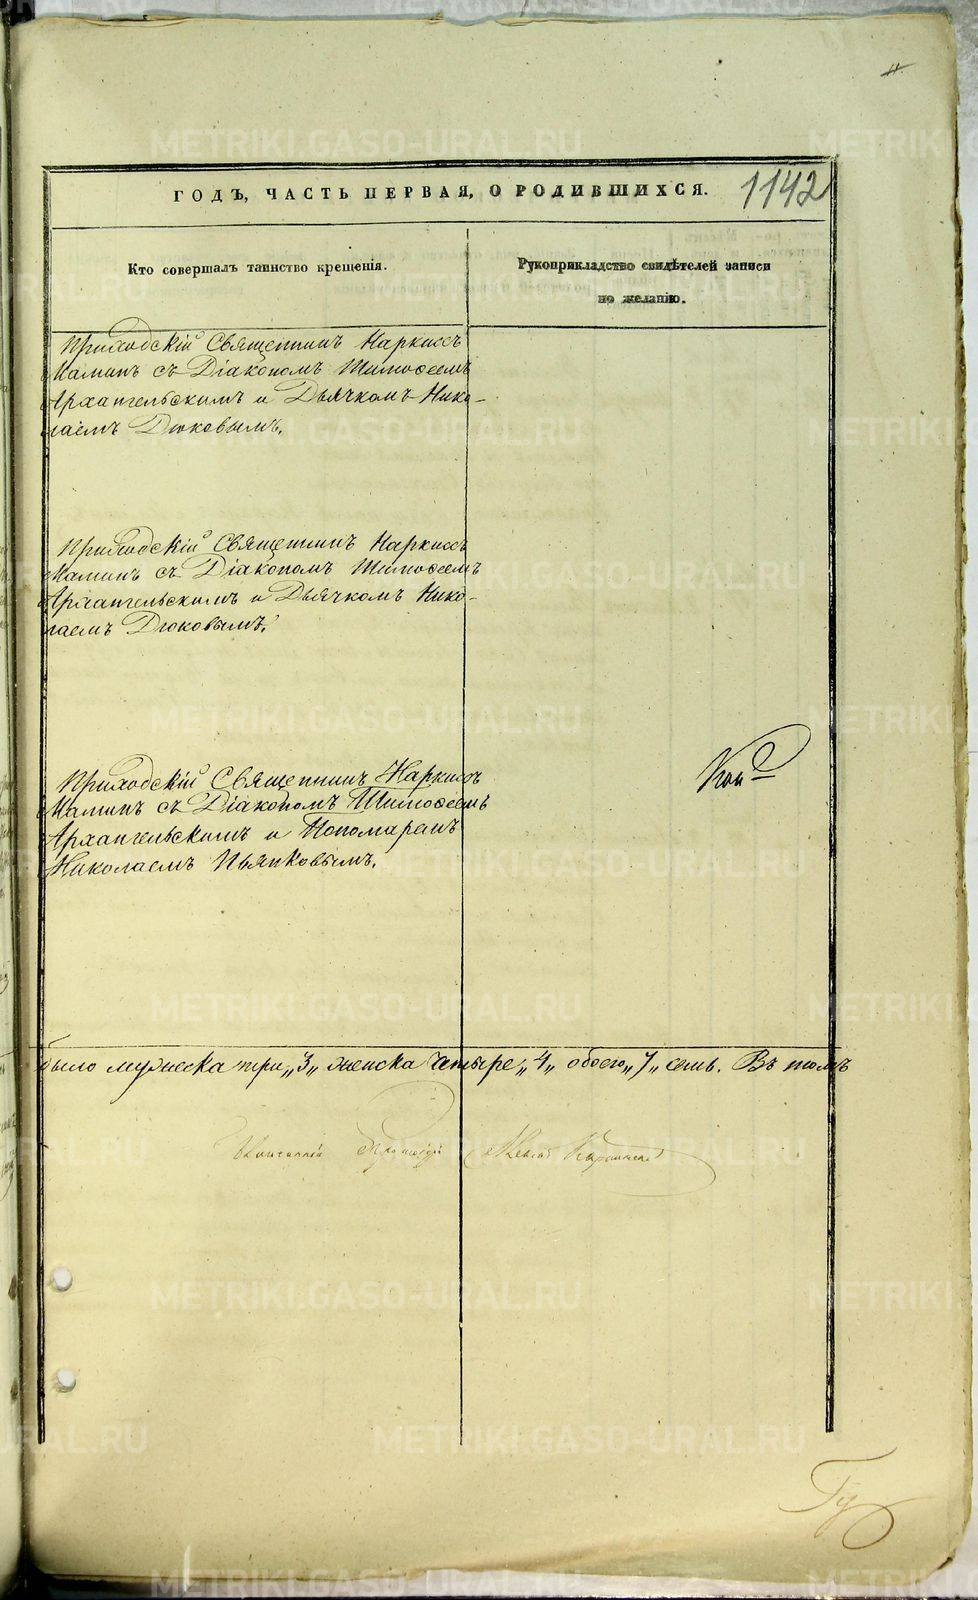 ГОДЪ, ЧАСТЬ ПЕРВАЯ, О РОДИВШИХСЯ. 1142
Кто совершалъ таинство крещенія.
Рукоприкладство свидѣтелей записи
по желанію.
Приходскій Священникъ Наркисъ
Маминъ съ Діакономъ Тимофеемъ
Архангельскимъ и Дьячкомъ Нико-
лаемъ Дюковымъ.
Приходскій Священникъ Наркисъ
Маминъ съ Діакономъ Тимофеемъ
Архангельскимъ и Дьячкомъ Нико-
лаемъ Дюковымъ.
Приходскій Священникъ Наркисъ
Маминъ съ Діакономъ Тимофеемъ
Архангельскимъ и Пономаремъ
Николаемъ Пьянковымъ.
было мужеска три „3„ женска четыре „4„ обоего „7„ семь. Въ томъ
METRIKI.GASO-URAL.RU